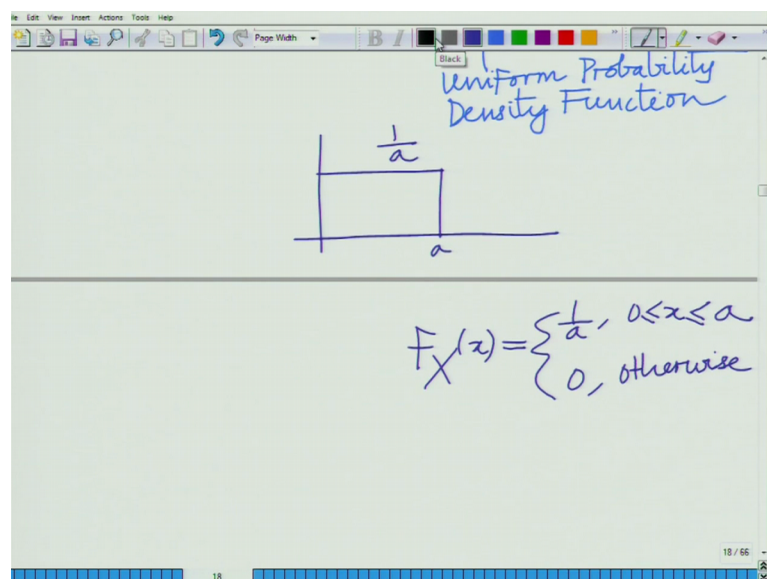 File Edit View Insert Actions Tools Help
Page Width
B I
Black
Uniform Probability
Density Function
1/a
a
F_X(x) = { 1/a, 0≤x≤a
0, otherwise
18 / 66
18